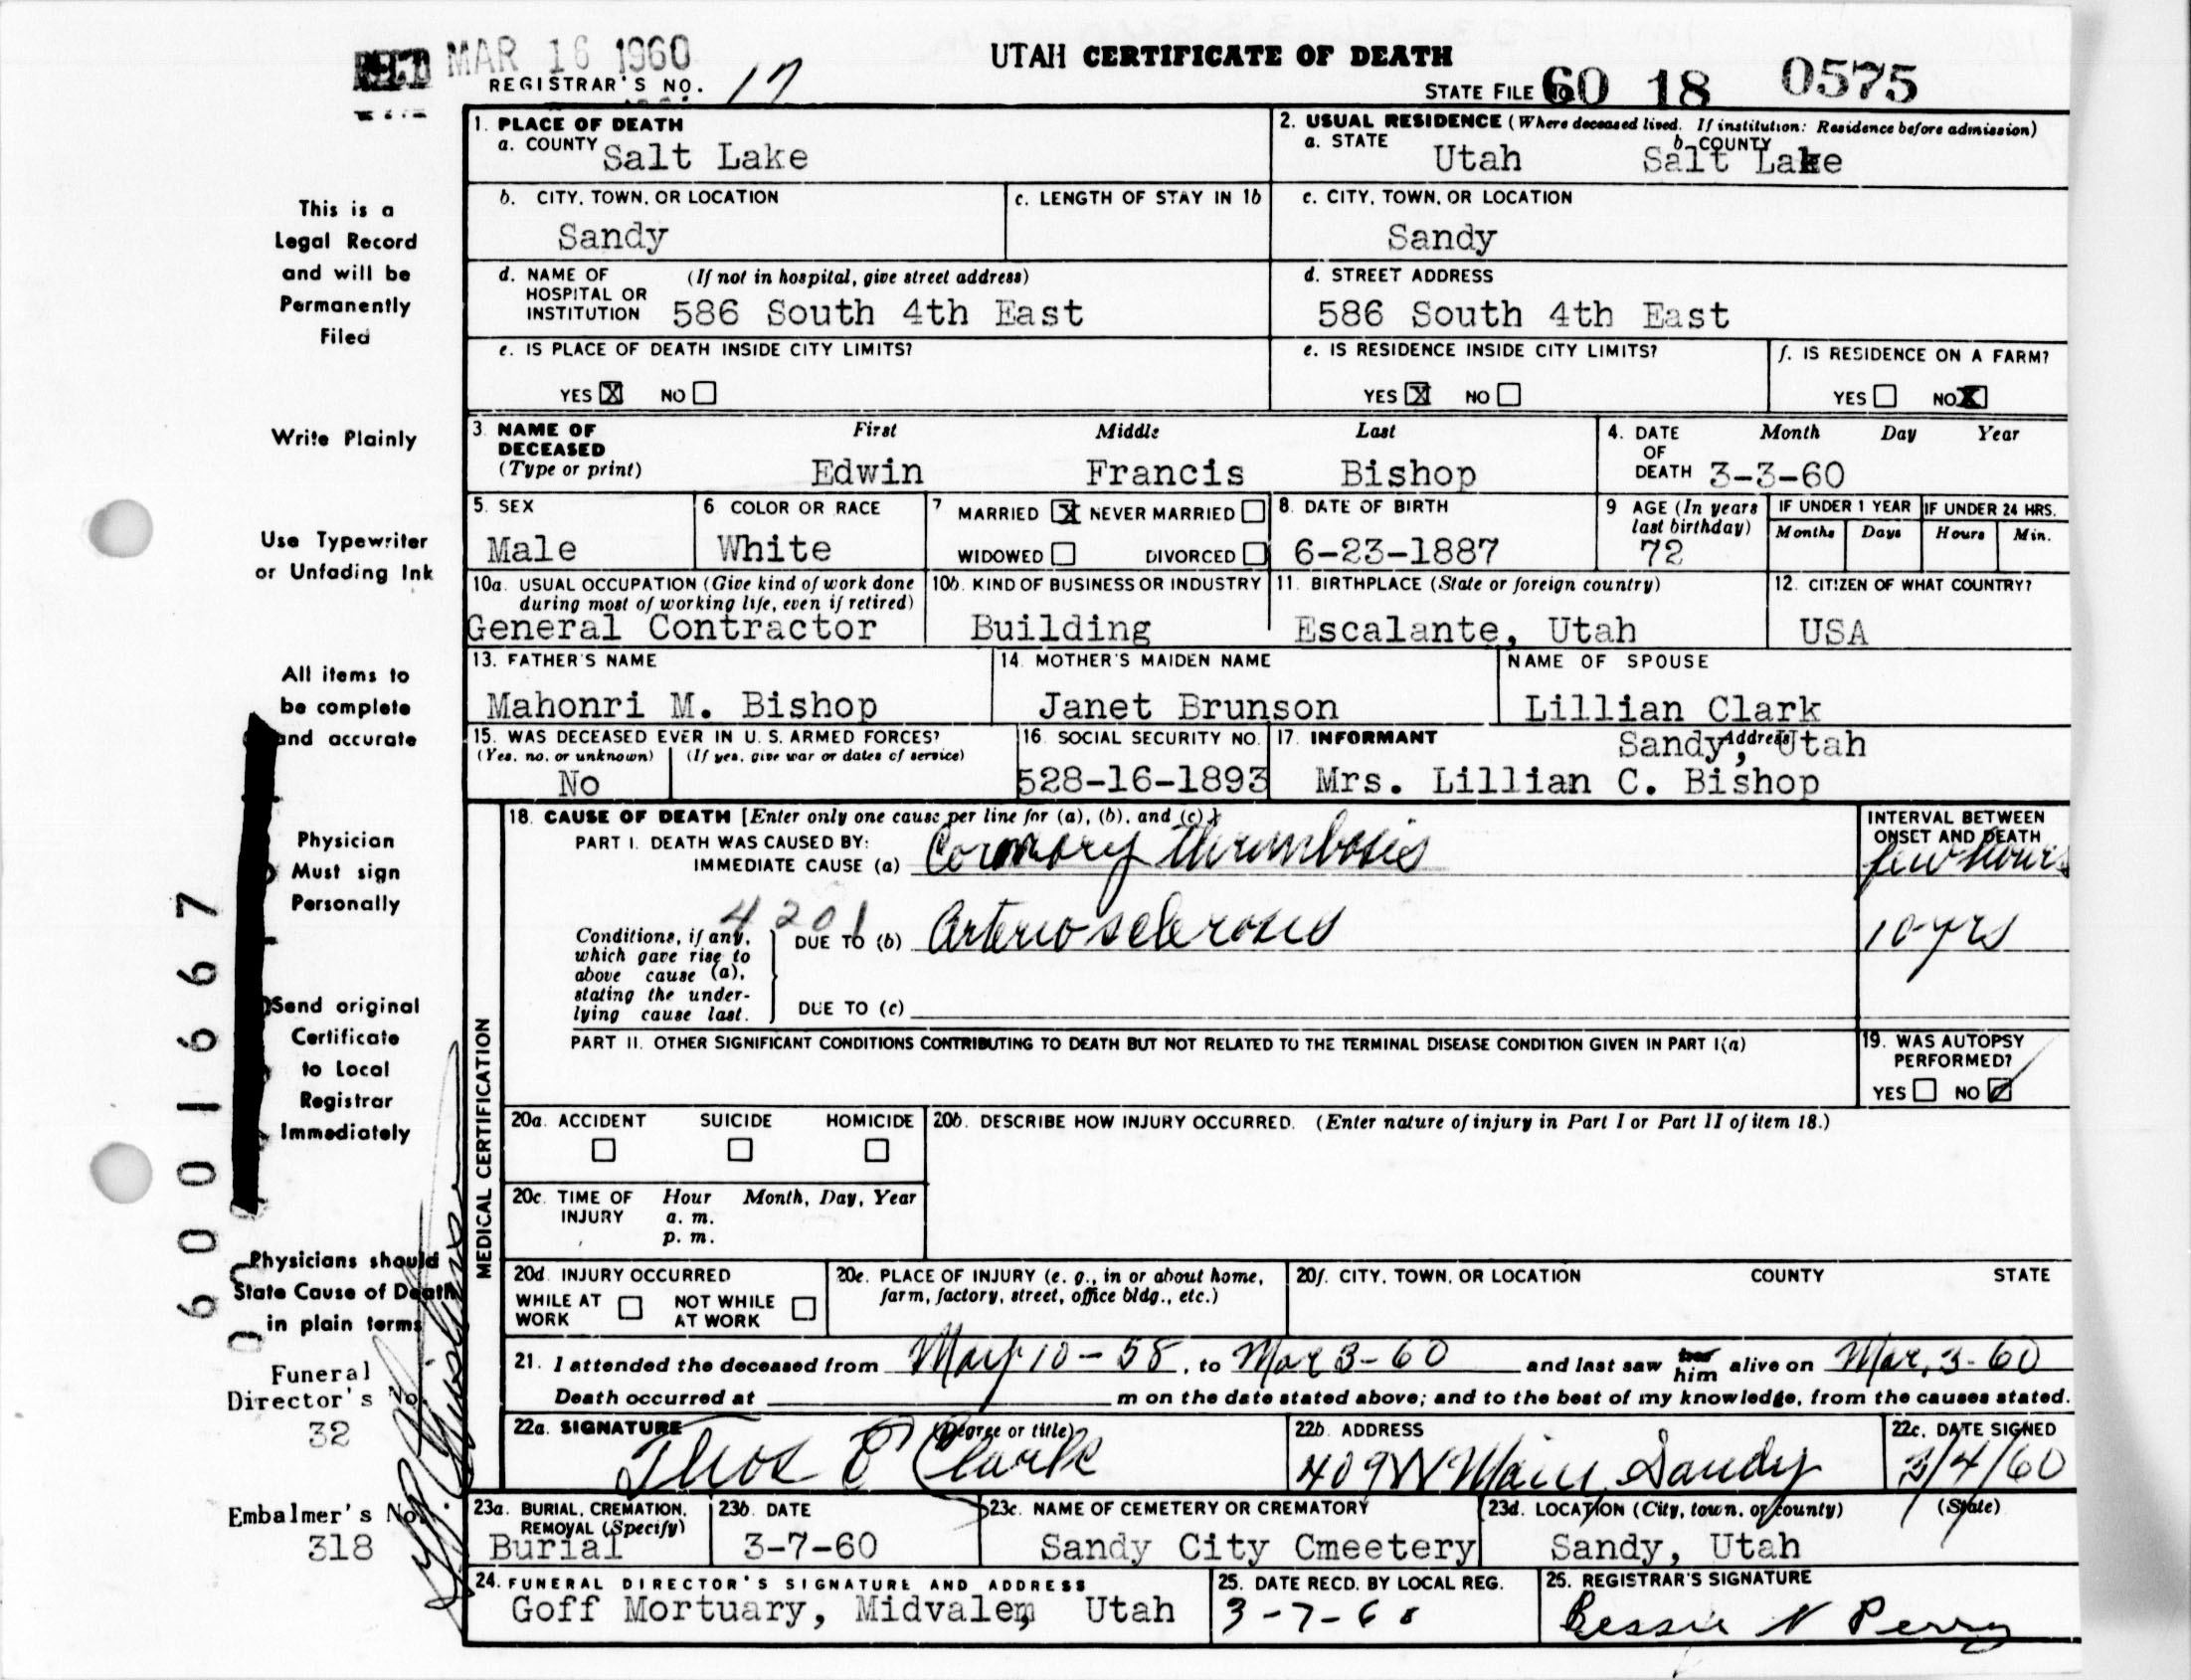 REC'D MAR 16 1960
UTAH CERTIFICATE OF DEATH
REGISTRAR'S NO. 17
STATE FILE 60 18 0575
1. PLACE OF DEATH
a. COUNTY Salt Lake
2. USUAL RESIDENCE (Where deceased lived. If institution: Residence before admission)
a. STATE Utah b. COUNTY Salt Lake
b. CITY, TOWN, OR LOCATION Sandy
c. LENGTH OF STAY IN 1b
c. CITY, TOWN, OR LOCATION Sandy
d. NAME OF HOSPITAL OR INSTITUTION (If not in hospital, give street address)
586 South 4th East
d. STREET ADDRESS
586 South 4th East
e. IS PLACE OF DEATH INSIDE CITY LIMITS?
YES X NO
e. IS RESIDENCE INSIDE CITY LIMITS?
YES X NO
f. IS RESIDENCE ON A FARM?
YES NO X
3. NAME OF DECEASED (Type or print)
First Middle Last
Edwin Francis Bishop
4. DATE OF DEATH Month Day Year
3-3-60
5. SEX Male
6 COLOR OR RACE White
7 MARRIED X NEVER MARRIED
WIDOWED DIVORCED
8. DATE OF BIRTH 6-23-1887
9 AGE (In years last birthday) 72
IF UNDER 1 YEAR Months Days
IF UNDER 24 HRS. Hours Min.
10a. USUAL OCCUPATION (Give kind of work done during most of working life, even if retired)
General Contractor
10b. KIND OF BUSINESS OR INDUSTRY
Building
11. BIRTHPLACE (State or foreign country)
Escalante, Utah
12. CITIZEN OF WHAT COUNTRY?
USA
13. FATHER'S NAME
Mahonri M. Bishop
14. MOTHER'S MAIDEN NAME
Janet Brunson
NAME OF SPOUSE
Lillian Clark
15. WAS DECEASED EVER IN U. S. ARMED FORCES?
(Yes, no, or unknown) (If yes, give war or dates of service)
No
16. SOCIAL SECURITY NO.
528-16-1893
17. INFORMANT Address
Sandy, Utah
Mrs. Lillian C. Bishop
MEDICAL CERTIFICATION
18. CAUSE OF DEATH [Enter only one cause per line for (a), (b), and (c).]
PART I. DEATH WAS CAUSED BY:
IMMEDIATE CAUSE (a) Coronary thrombosis
INTERVAL BETWEEN ONSET AND DEATH
few hours
4201
Conditions, if any, which gave rise to above cause (a), stating the underlying cause last.
DUE TO (b) Arteriosclerosis
10 yrs
DUE TO (c)
PART II. OTHER SIGNIFICANT CONDITIONS CONTRIBUTING TO DEATH BUT NOT RELATED TO THE TERMINAL DISEASE CONDITION GIVEN IN PART I(a)
19. WAS AUTOPSY PERFORMED?
YES NO
20a. ACCIDENT SUICIDE HOMICIDE
20b. DESCRIBE HOW INJURY OCCURRED. (Enter nature of injury in Part I or Part II of item 18.)
20c. TIME OF INJURY Hour Month, Day, Year
a. m.
p. m.
20d. INJURY OCCURRED
WHILE AT WORK NOT WHILE AT WORK
20e. PLACE OF INJURY (e. g., in or about home, farm, factory, street, office bldg., etc.)
20f. CITY, TOWN, OR LOCATION COUNTY STATE
21. I attended the deceased from May 10-58, to Mar 3-60 and last saw her him alive on Mar, 3-60
Death occurred at m on the date stated above; and to the best of my knowledge, from the causes stated.
22a. SIGNATURE (Degree or title)
Thos E Clark
22b. ADDRESS
409 W Main Sandy
22c. DATE SIGNED
3/4/60
23a. BURIAL, CREMATION, REMOVAL (Specify)
Burial
23b. DATE
3-7-60
23c. NAME OF CEMETERY OR CREMATORY
Sandy City Cmeetery
23d. LOCATION (City, town, or county) (State)
Sandy, Utah
24. FUNERAL DIRECTOR'S SIGNATURE AND ADDRESS
Goff Mortuary, Midvale, Utah
25. DATE RECD. BY LOCAL REG.
3-7-60
25. REGISTRAR'S SIGNATURE
Bessie N Perry
This is a
Legal Record
and will be
Permanently
Filed
Write Plainly
Use Typewriter
or Unfading Ink
All items to
be complete
and accurate
Physician
Must sign
Personally
Send original
Certificate
to Local
Registrar
Immediately
Physicians should
State Cause of Death
in plain terms
Funeral
Director's No.
32
Embalmer's No.
318
6001667